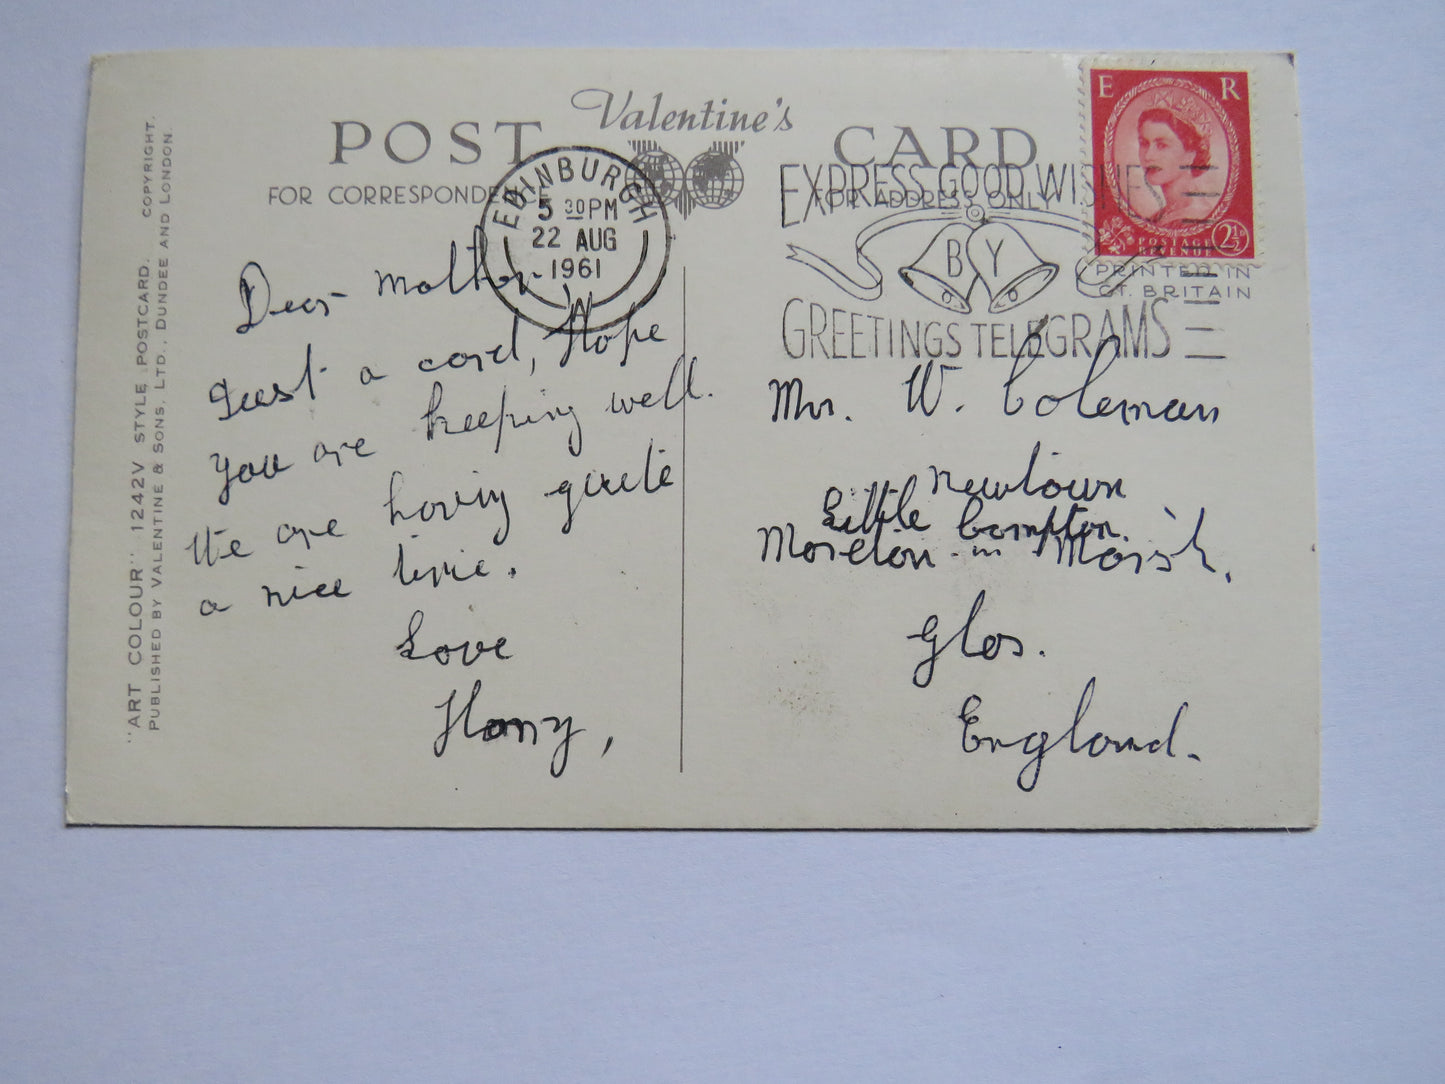 "ART COLOUR" 1242V STYLE POSTCARD. COPYRIGHT.
PUBLISHED BY VALENTINE & SONS, LTD., DUNDEE AND LONDON.
POST
Valentine's
CARD
FOR CORRESPONDENCE
FOR ADDRESS ONLY
EDINBURGH
5 30 PM
22 AUG
1961
EXPRESS GOOD WISHES
BY
GREETINGS TELEGRAMS
E R
POSTAGE
REVENUE
2½D
PRINTED IN
GT. BRITAIN
Dear Mother
Just a card, Hope
you are keeping well.
We are having quite
a nice time.
Love
Harry,
Mr. W. Coleman
Newtown
Little Compton.
Moreton-in Marsh,
Glos.
England.